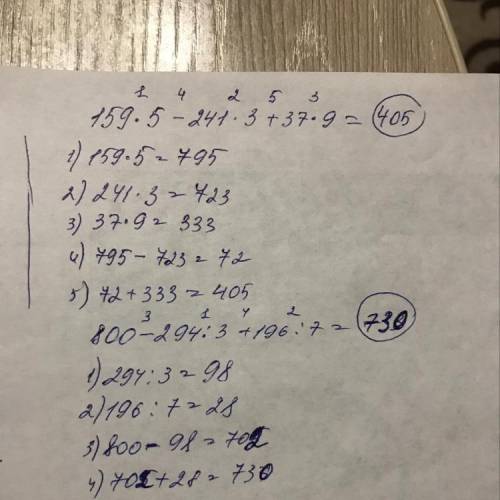 1 4 2 5 3
159·5-241·3+37·9=405
1) 159·5=795
2) 241·3=723
3) 37·9=333
4) 795-723=72
5) 72+333=405
3 1 4 2
800-294:3+196:7=730
1) 294:3=98
2) 196:7=28
3) 800-98=702
4) 702+28=730